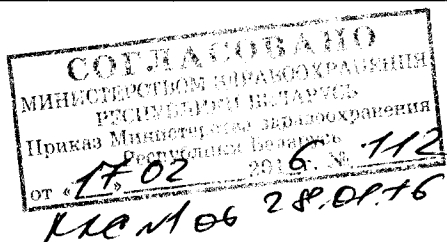 СОГЛАСОВАНО
МИНИСТЕРСТВОМ ЗДРАВООХРАНЕНИЯ
РЕСПУБЛИКИ БЕЛАРУСЬ
Приказ Министерства здравоохранения
Республики Беларусь
от «17» 02 2016 г. № 112
КЛС №06 28.01.16